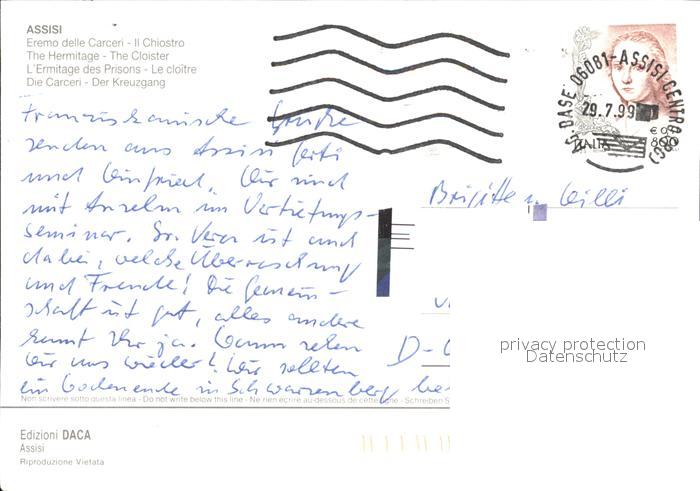 ASSISI
Eremo delle Carceri - Il Chiostro
The Hermitage - The Cloister
L'Ermitage des Prisons - Le cloître
Die Carceri - Der Kreuzgang
Franziskanische Grüße
senden aus Assisi Gerti
und Winfried. Wir sind
mit Anselm im Vertiefungs-
seminar. Sr. Vera ist auch
dabei, welche Überraschung
und Freude! Die Gemein-
schaft ist gut, alles andere
kennt Ihr ja. Wann sehen
wir uns wieder? Wir sollten
ein Wochenende in Schwarzenberg
Non scrivere sotto questa linea - Do not write below this line - Ne rien écrire au-dessous de cette ligne - Schreiben S
Edizioni DACA
Assisi
Riproduzione Vietata
AS.DASE 06081-ASSISI CENTRO (PG)
29.7.99
ITALIA
800
Brigitte u. Willi
D-
privacy protection
Datenschutz